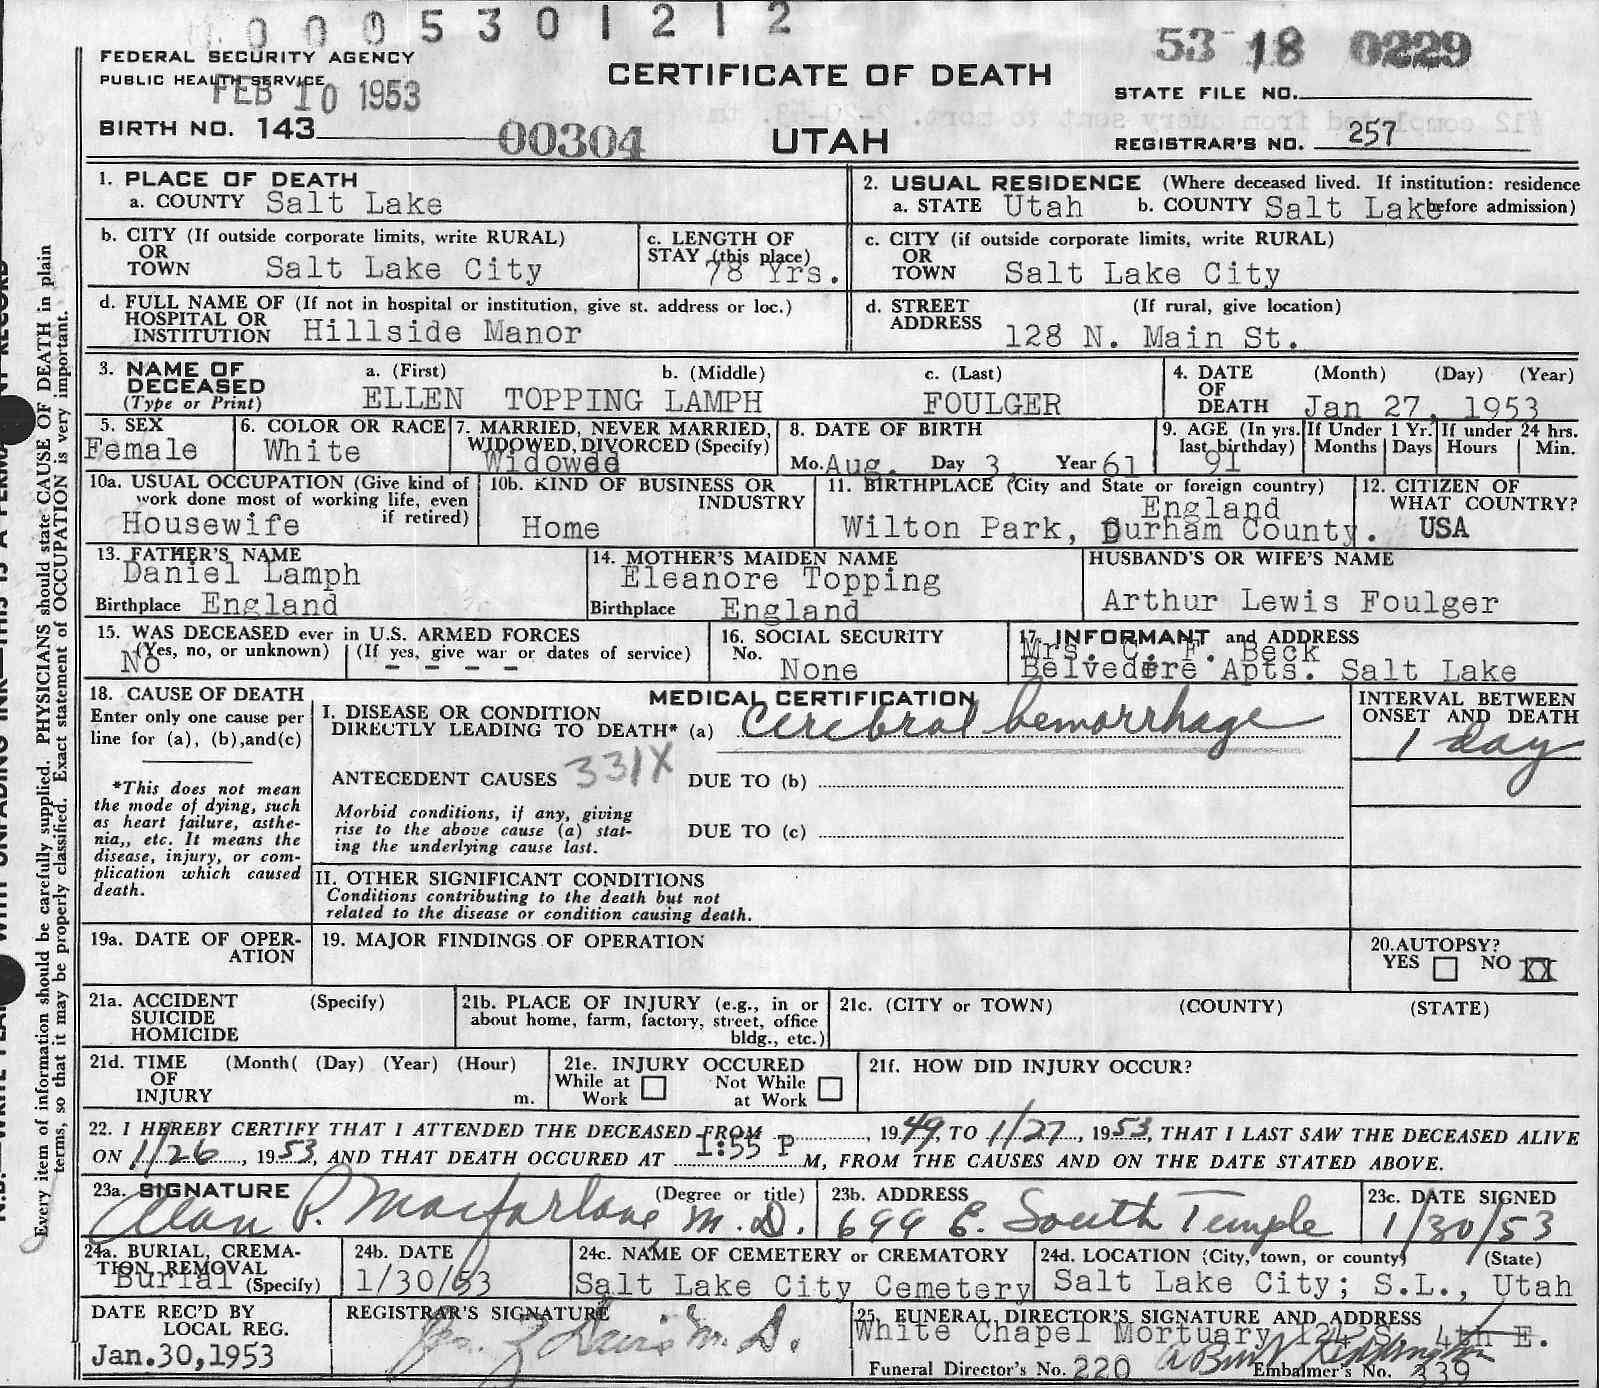 0 0 0 5 3 0 1 2 1 2
FEDERAL SECURITY AGENCY
PUBLIC HEALTH SERVICE
FEB 10 1953
CERTIFICATE OF DEATH
53 18 0229
STATE FILE NO.
BIRTH NO. 143
00304
UTAH
REGISTRAR'S NO. 257
1. PLACE OF DEATH
a. COUNTY Salt Lake
2. USUAL RESIDENCE (Where deceased lived. If institution: residence before admission)
a. STATE Utah b. COUNTY Salt Lake
b. CITY (If outside corporate limits, write RURAL)
OR
TOWN Salt Lake City
c. LENGTH OF
STAY (this place)
78 Yrs.
c. CITY (if outside corporate limits, write RURAL)
OR
TOWN Salt Lake City
d. FULL NAME OF (If not in hospital or institution, give st. address or loc.)
HOSPITAL OR
INSTITUTION Hillside Manor
d. STREET (If rural, give location)
ADDRESS 128 N. Main St.
3. NAME OF
DECEASED
(Type or Print)
a. (First) b. (Middle) c. (Last)
ELLEN TOPPING LAMPH FOULGER
4. DATE (Month) (Day) (Year)
OF
DEATH Jan 27, 1953
5. SEX
Female
6. COLOR OR RACE
White
7. MARRIED, NEVER MARRIED,
WIDOWED, DIVORCED (Specify)
Widowed
8. DATE OF BIRTH
Mo. Aug. Day 3 Year 61
9. AGE (In yrs.
last birthday)
91
If Under 1 Yr.
Months Days
If under 24 hrs.
Hours Min.
10a. USUAL OCCUPATION (Give kind of
work done most of working life, even
if retired)
Housewife
10b. KIND OF BUSINESS OR
INDUSTRY
Home
11. BIRTHPLACE (City and State or foreign country)
England
Wilton Park, Durham County.
12. CITIZEN OF
WHAT COUNTRY?
USA
13. FATHER'S NAME
Daniel Lamph
Birthplace England
14. MOTHER'S MAIDEN NAME
Eleanore Topping
Birthplace England
HUSBAND'S OR WIFE'S NAME
Arthur Lewis Foulger
15. WAS DECEASED ever in U.S. ARMED FORCES
(Yes, no, or unknown) (If yes, give war or dates of service)
No - - - -
16. SOCIAL SECURITY
No.
None
17. INFORMANT and ADDRESS
Mrs. C. F. Beck
Belvedere Apts. Salt Lake
18. CAUSE OF DEATH
Enter only one cause per
line for (a), (b), and (c)
*This does not mean
the mode of dying, such
as heart failure, asthe-
nia,, etc. It means the
disease, injury, or com-
plication which caused
death.
MEDICAL CERTIFICATION
I. DISEASE OR CONDITION
DIRECTLY LEADING TO DEATH* (a) Cerebral hemorrhage
INTERVAL BETWEEN
ONSET AND DEATH
1 day
ANTECEDENT CAUSES 331X DUE TO (b)
Morbid conditions, if any, giving
rise to the above cause (a) stat-
ing the underlying cause last.
DUE TO (c)
II. OTHER SIGNIFICANT CONDITIONS
Conditions contributing to the death but not
related to the disease or condition causing death.
19a. DATE OF OPER-
ATION
19. MAJOR FINDINGS OF OPERATION
20. AUTOPSY?
YES NO XX
21a. ACCIDENT (Specify)
SUICIDE
HOMICIDE
21b. PLACE OF INJURY (e.g., in or
about home, farm, factory, street, office
bldg., etc.)
21c. (CITY or TOWN) (COUNTY) (STATE)
21d. TIME (Month( (Day) (Year) (Hour)
OF
INJURY m.
21e. INJURY OCCURED
While at Work Not While at Work
21f. HOW DID INJURY OCCUR?
22. I HEREBY CERTIFY THAT I ATTENDED THE DECEASED FROM , 1949, TO 1/27, 1953, THAT I LAST SAW THE DECEASED ALIVE
ON 1/26, 1953, AND THAT DEATH OCCURED AT 1:55 P M, FROM THE CAUSES AND ON THE DATE STATED ABOVE.
23a. SIGNATURE (Degree or title)
Alan P. Macfarlane M.D.
23b. ADDRESS
699 E. South Temple
23c. DATE SIGNED
1/30/53
24a. BURIAL, CREMA-
TION, REMOVAL
Burial (Specify)
24b. DATE
1/30/53
24c. NAME OF CEMETERY or CREMATORY
Salt Lake City Cemetery
24d. LOCATION (City, town, or county) (State)
Salt Lake City; S.L., Utah
DATE REC'D BY
LOCAL REG.
Jan. 30, 1953
REGISTRAR'S SIGNATURE
Davis M. D.
25. FUNERAL DIRECTOR'S SIGNATURE AND ADDRESS
White Chapel Mortuary 124 S. 4th E.
Funeral Director's No. 220 Embalmer's No. 339
Every item of information should be carefully supplied. PHYSICIANS should state CAUSE OF DEATH in plain
terms, so that it may be properly classified. Exact statement of OCCUPATION is very important.